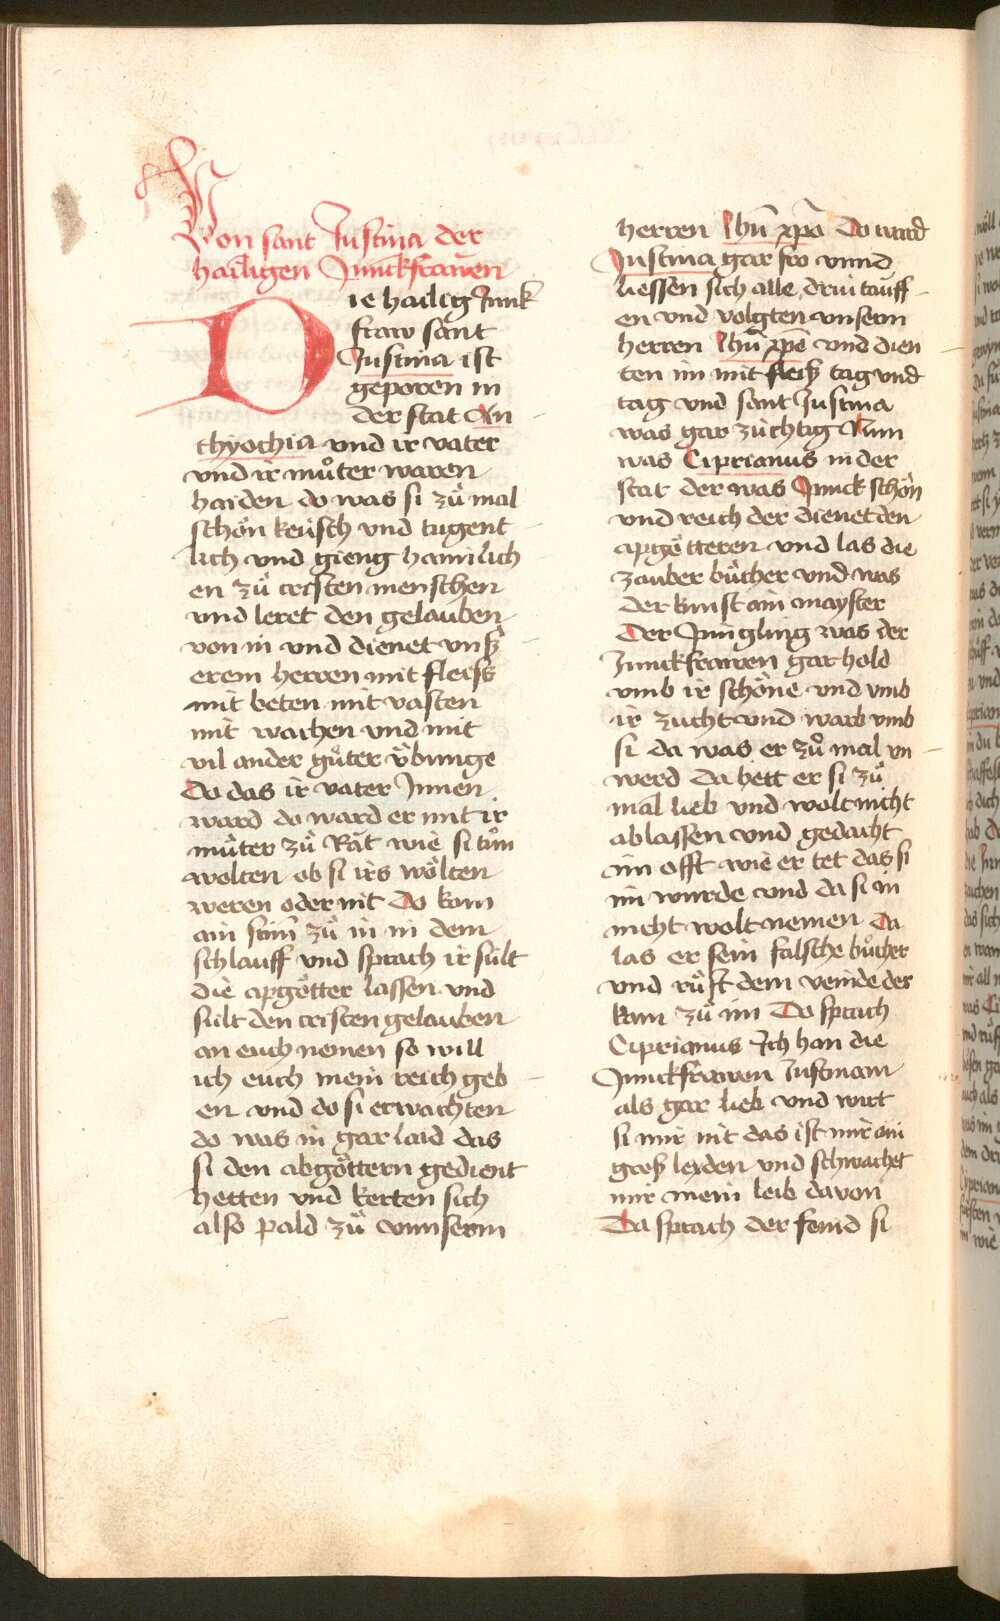 Von sant Justina der
hailigen Junckfrawen
Die hailig Junck
fraw sant
Justina ist
geporen in
der stat An
thyochia vnd ir vater
vnd ir muͦter waren
haiden do was si zuͦ mal
schön keüsch vnd tugent
lich vnd gieng haimlich
en zuͦ cristen menschen
vnd leret den gelauben
von in vnd dienet vnß
erem herren mit fleiß
mit beten mit vasten
mit wachen vnd mit
vil ander guͦter übunge
Do das ir vater Innen
ward do ward er mit ir
muͦter zuͦ Rät wie si tuͦn
wolten ob si irs wölten
weren oder nit Do kom
ain stim̄ zuͦ in in dem
schlauff vnd sprach ir sült
die apgötter lassen vnd
sült den cristen gelauben
an euch nemen so will
ich euch mein reich geb
en vnd do si erwachten
do was in gar laid das
si den abgöttern gedient
hetten vnd kerten sich
also pald zuͦ vnnserm
herren Jhū xp̄o Do ward
Justina gar fro vnnd
liessen sich alle drui tauff
en vnd volgten vnserm
herren Jhū xp̄o vnd dien
ten im mit fleiß tag vnd
tag vnd sant Justina
was gar züchtig Nun
was Ciprianus in der
stat der was Junck schön
vnd reich der dienet den
apgötteren vnd las die
zauber bücher vnd was
der kunst ain mayster
Der Jüngling was der
Junckfrawen gar hold
vmb ir schöne vnd vmb
ir zucht vnd warb vmb
si da was er zuͦ mal vn
werd Da hett er si zuͦ
mal lieb vnd wolt nicht
ablassen vnd gedacht
im offt wie er tet das si
im wurde vnd da si in
nicht wolt nemen Da
las er sein falsche buͦcher
vnd ruͦft dem veinde der
kam zuͦ im Do sprach
Ciprianus Ich han die
Junckfrawen Justinam
als gar lieb vnd wirt
si mir nit das ist mir ain
groß leyden vnd schwachet
mir mein leib davon
Da sprach der feind si